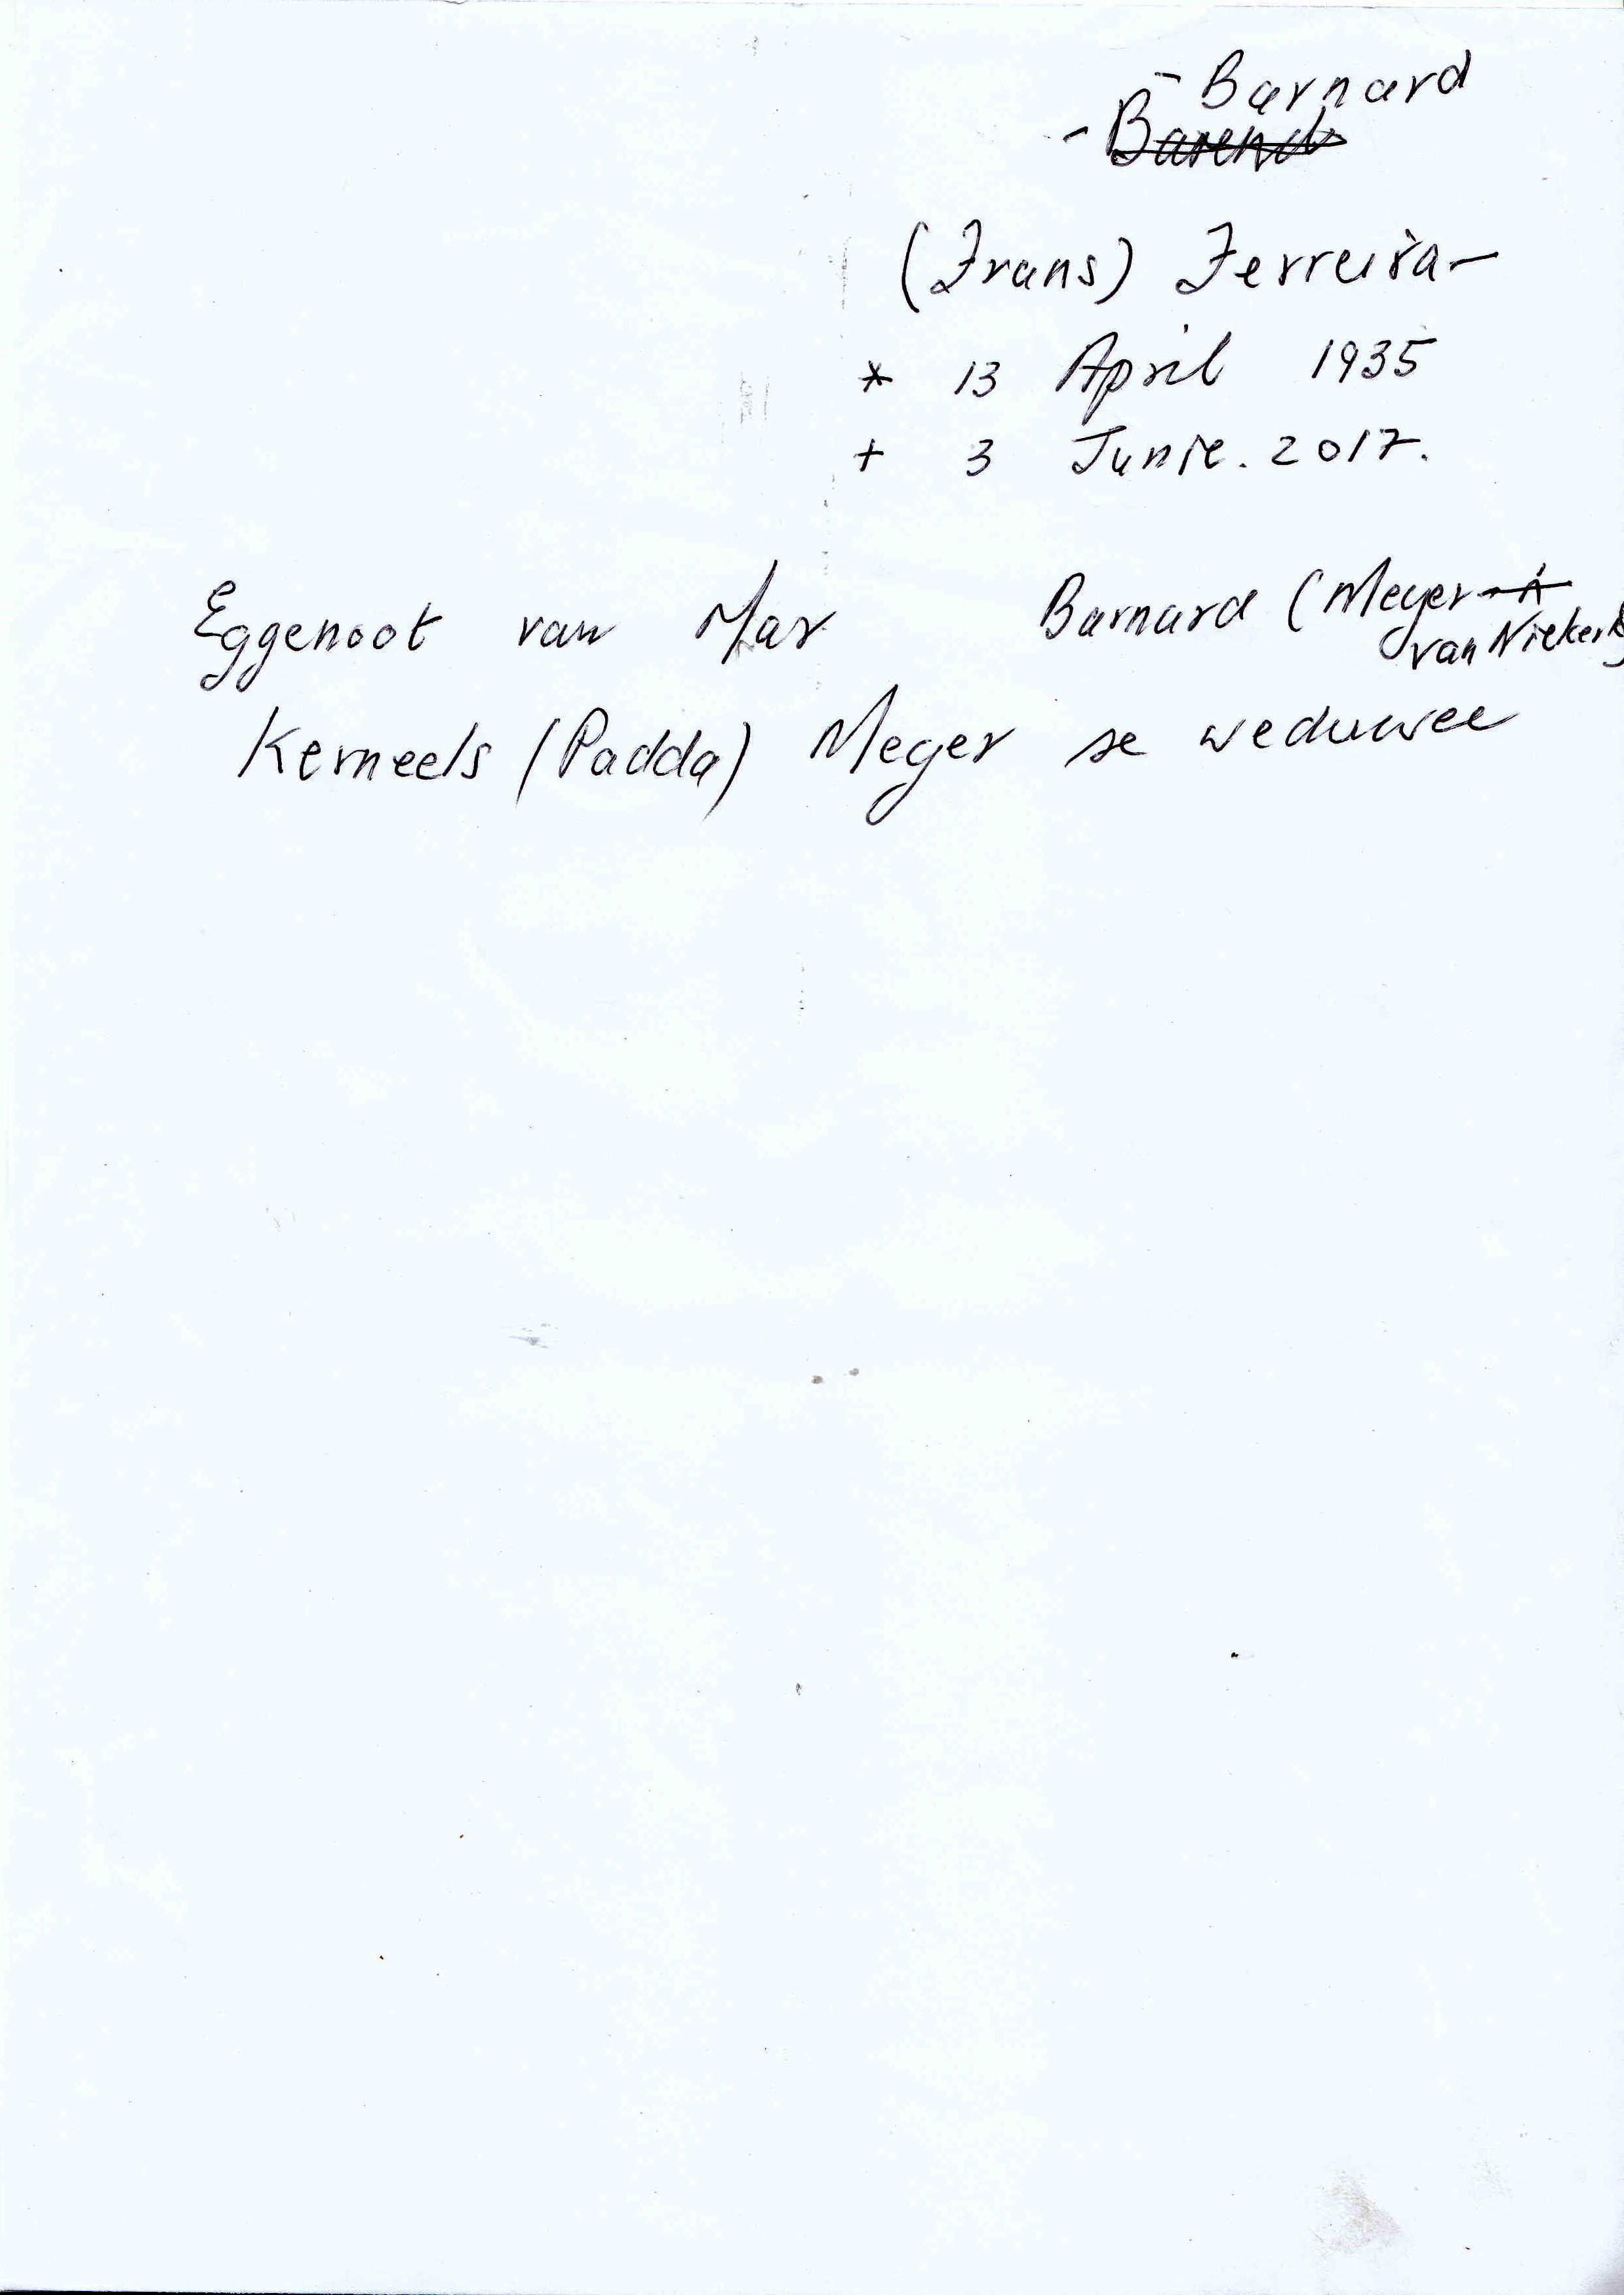 - Barnard
- Barend
(Frans) Ferreira -
* 13 April 1935
+ 3 Junie. 2017.
Eggenoot van Mar Barnard (Meyer -
van Niekerk)
Kerneels (Padda) Meyer se weduwee